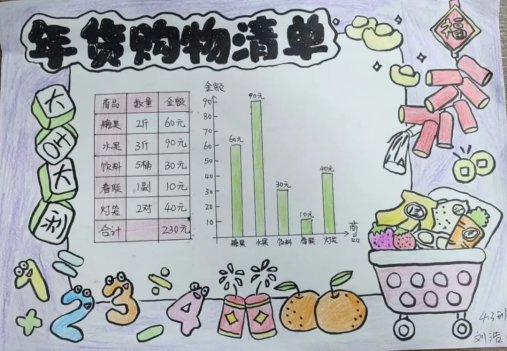 年货购物清单
福
大
吉
大
利
商品 数量 金额
糖果 2斤 60元
水果 3斤 90元
饮料 5桶 30元
春联 1副 10元
灯笼 2对 40元
合计 230元
金额
90
80
70
60
50
40
30
20
10
60元
90元
30元
10元
40元
糖果 水果 饮料 春联 灯笼
商品
1 2 3 4
4.3班
刘浩